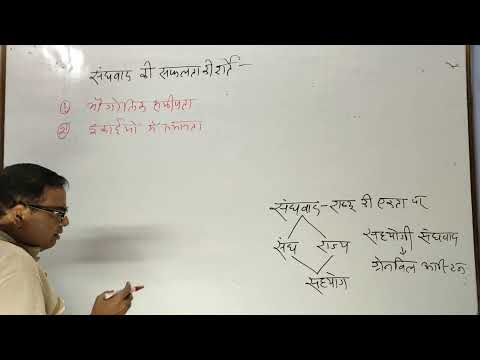 संघवाद की सफलता की शर्तें -
① भौगोलिक समीपता
② इकाईयों में समानता
संघवाद - राष्ट्र की एकता का
संघ राज्य
सहयोग
सहयोगी संघवाद
↓
ग्रेनविल ऑस्टिन